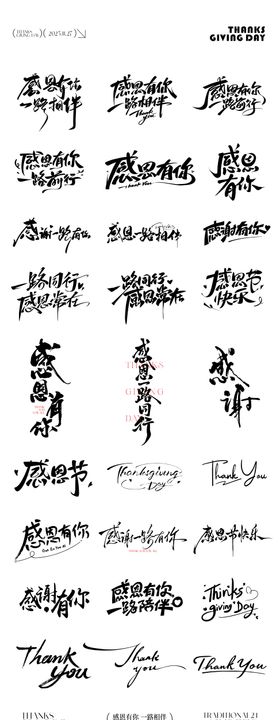 THANKS
GIVING DAY
2025.11.27
THANKS
GIVING DAY
感恩有你
一路相伴
感恩有你
一路相伴
Thank you
感恩有你
一路前行
感恩有你
一路前行
感恩有你
Thank You
感恩
有你
感谢一路有你
感恩一路相伴
感谢有你
一路同行
感恩常在
一路同行
感恩常在
感恩节
快乐
感恩有你
感恩一路同行
THANKS
GIVING
DAY
感谢
感恩节
Thanksgiving
Day
Thank You
感恩有你
感谢一路有你
感恩节快乐
感谢有你
感恩有你
一路陪伴
Thinks
giving Day
Thank
you
Thank
you
Thank You
THANKS
(感恩有你 一路相伴)
TRADITIONAL 21